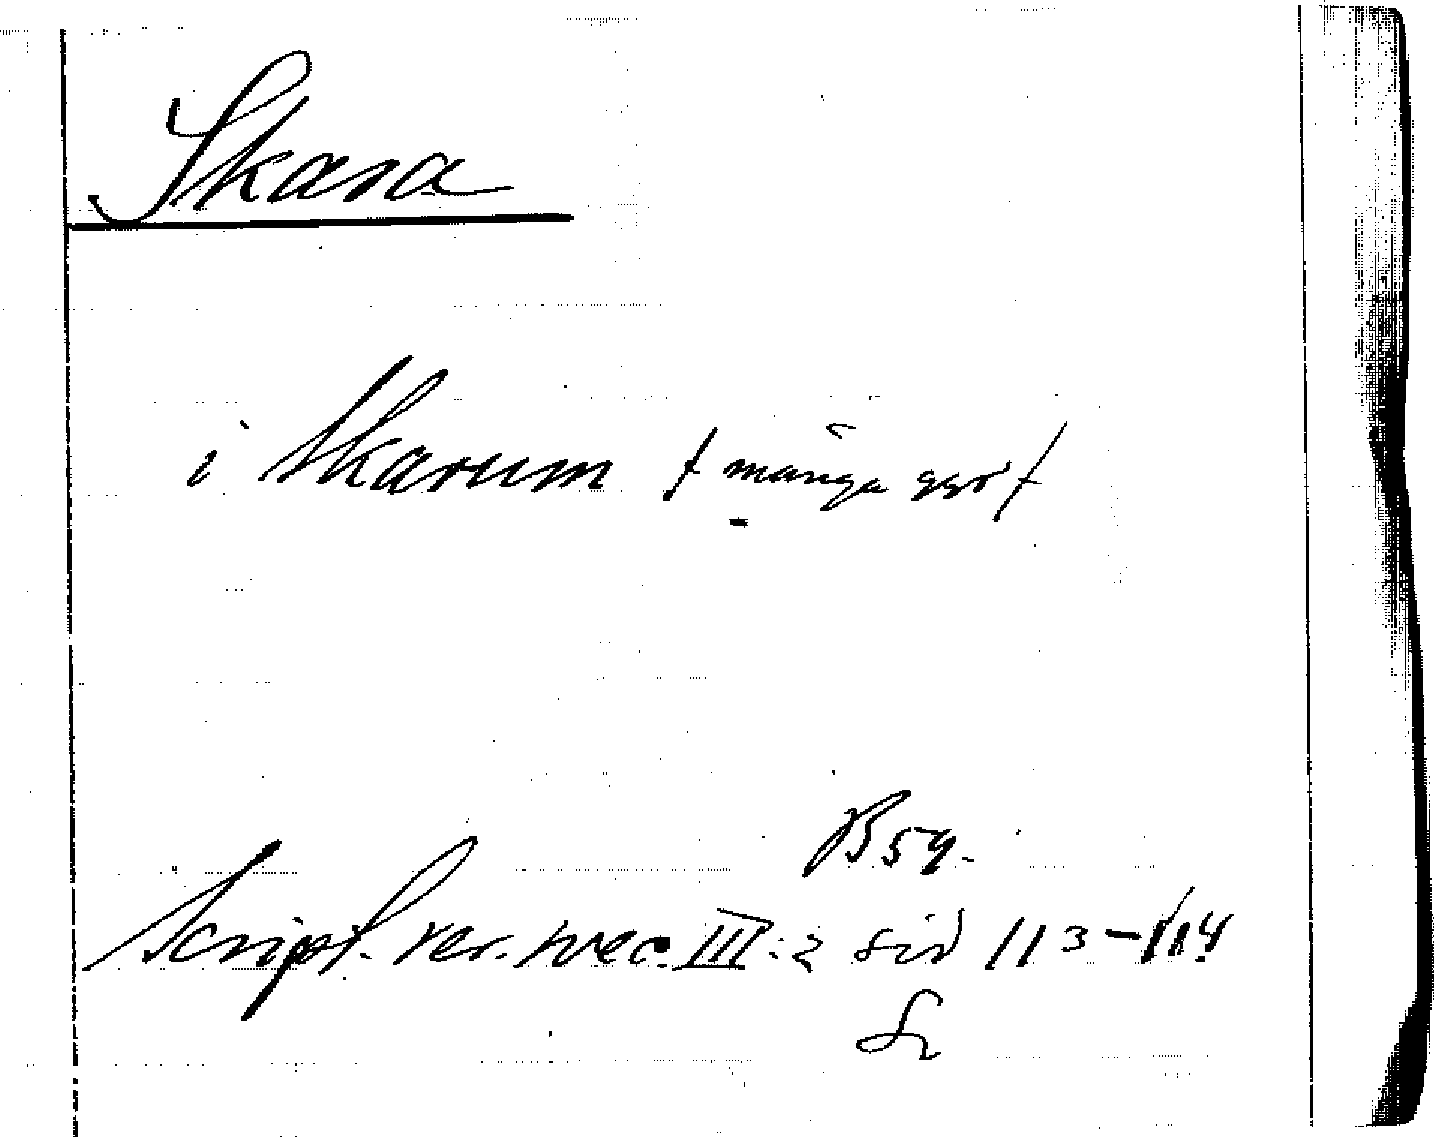 Skara
i Skarum / många ggr /
B 59.
Script. rer. svec. III:2 sid 113-114